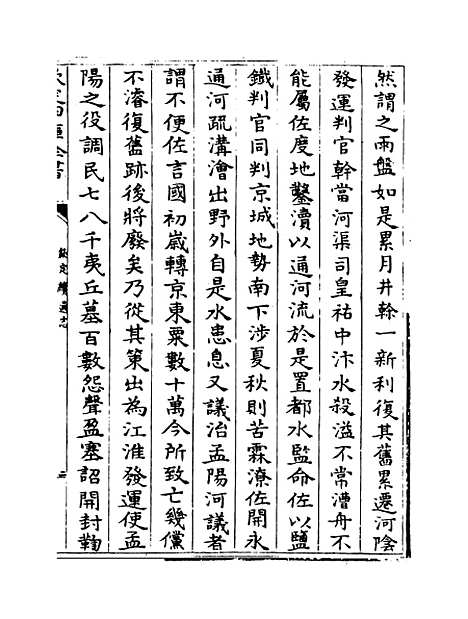 然謂之雨盤如是累月井榦一新利復其舊累遷河陰
發運判官幹當河渠司皇祐中汴水殺溢不常漕舟不
能屬佐度地鑿瀆以通河流於是置都水監命佐以鹽
鐵判官同判京城地勢南下涉夏秋則苦霖潦佐開永
通河疏溝澮出野外自是水患息又議治孟陽河議者
謂不便佐言國初歲轉京東粟數十萬今所致亡幾儻
不濬復舊跡後將廢矣乃從其策出為江淮發運使孟
陽之役調民七八千夷丘墓百數怨聲盈塞詔開封鞫
欽定四庫全書
欽定續通志